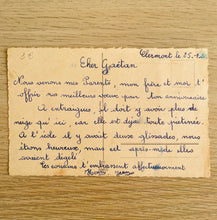 Clermont le 25.1.
Cher Gaëtan
Nous venons mes Parents, mon frère et moi t'
offrir nos meilleurs vœux pour ton anniversaire
A entraigues, il doit y avoir plus de
neige qu'ici car elle est déjà toute piétinée.
A l'école il y avait deux glissades, nous
étions heureux, mais cet après-midi elles
avaient dégelé
Tes cousins t'embrassent affectueusement